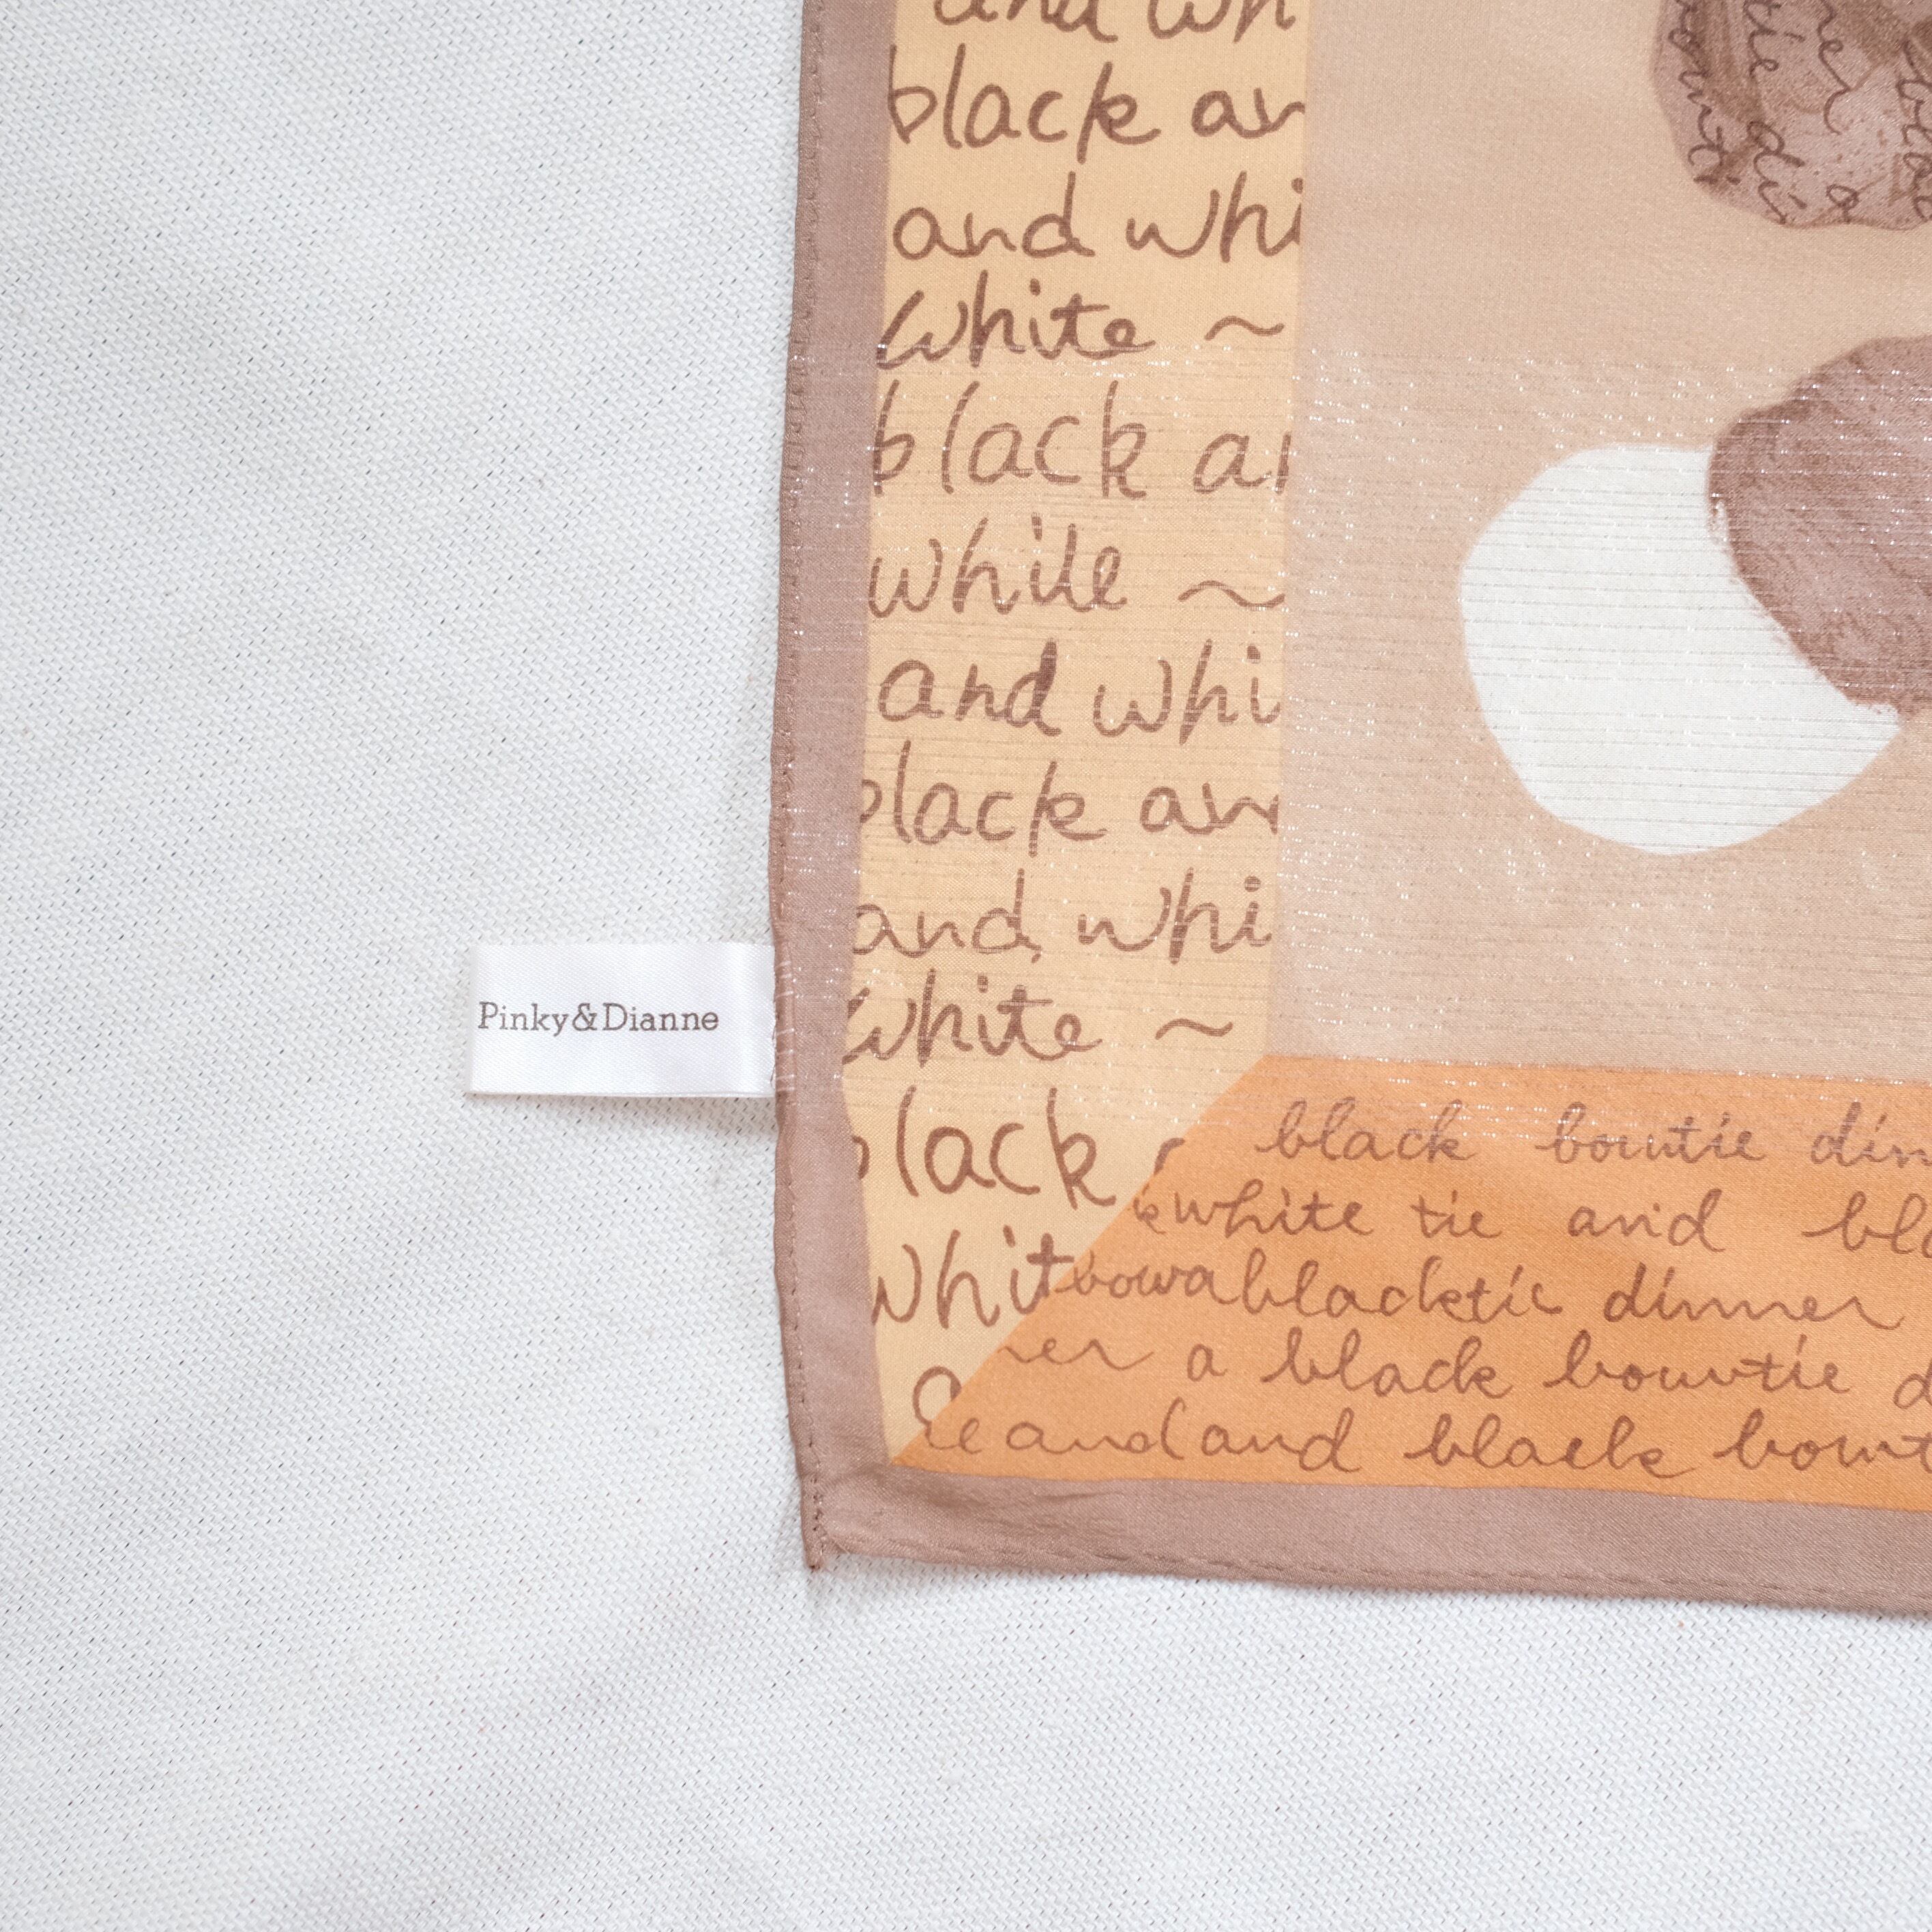 and wh
black an
and whi
white ~
black a
while ~
and whi
black an
and whi
white ~
Pinky&Dianne
lack
whit
black bowtie din
white tie and bla
bowa blacktie dinner
ner a black bowtie d
and and black bowt
tie di